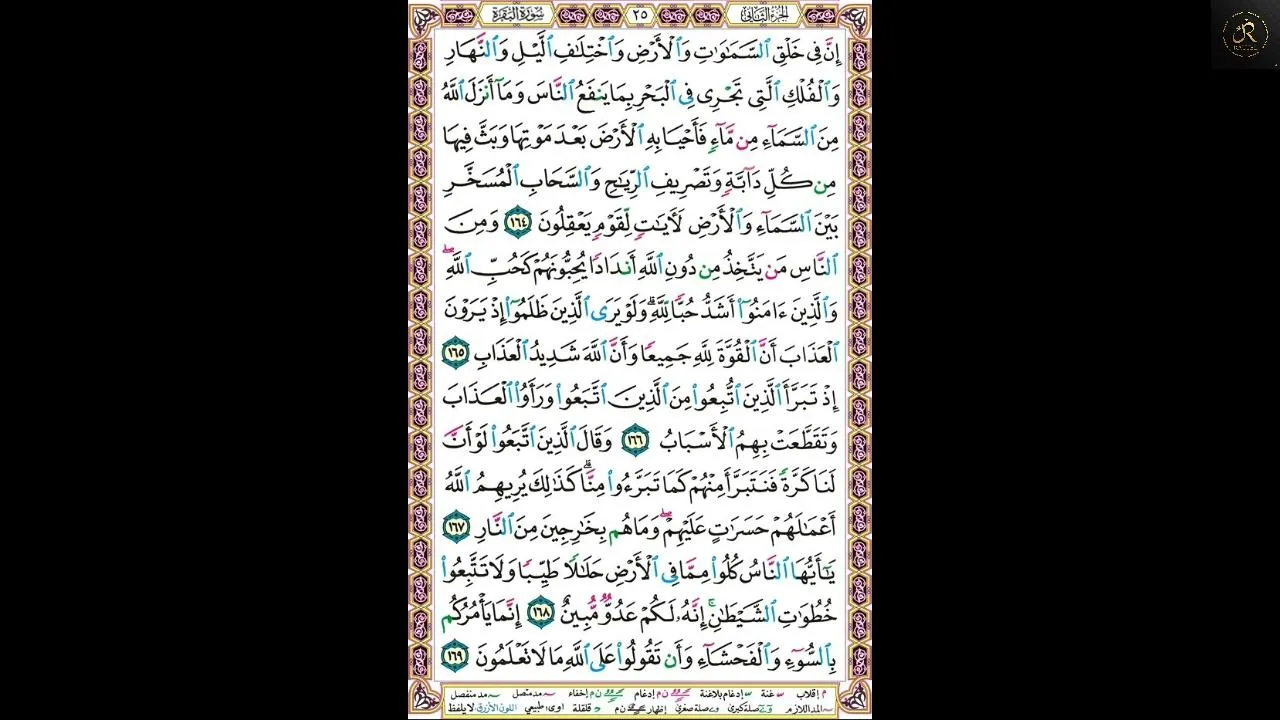 الجزء الثاني ٢٥ سورة البقرة
إِنَّ فِى خَلْقِ ٱلسَّمَٰوَٰتِ وَٱلْأَرْضِ وَٱخْتِلَٰفِ ٱلَّيْلِ وَٱلنَّهَارِ
وَٱلْفُلْكِ ٱلَّتِى تَجْرِى فِى ٱلْبَحْرِ بِمَا يَنفَعُ ٱلنَّاسَ وَمَآ أَنزَلَ ٱللَّهُ
مِنَ ٱلسَّمَآءِ مِن مَّآءٍ فَأَحْيَا بِهِ ٱلْأَرْضَ بَعْدَ مَوْتِهَا وَبَثَّ فِيهَا
مِن كُلِّ دَآبَّةٍ وَتَصْرِيفِ ٱلرِّيَٰحِ وَٱلسَّحَابِ ٱلْمُسَخَّرِ
بَيْنَ ٱلسَّمَآءِ وَٱلْأَرْضِ لَءَايَٰتٍ لِّقَوْمٍ يَعْقِلُونَ ١٦٤ وَمِنَ
ٱلنَّاسِ مَن يَتَّخِذُ مِن دُونِ ٱللَّهِ أَندَادًا يُحِبُّونَهُمْ كَحُبِّ ٱللَّهِ ۖ
وَٱلَّذِينَ ءَامَنُوٓا۟ أَشَدُّ حُبًّا لِّلَّهِ ۗ وَلَوْ يَرَى ٱلَّذِينَ ظَلَمُوٓا۟ إِذْ يَرَوْنَ
ٱلْعَذَابَ أَنَّ ٱلْقُوَّةَ لِلَّهِ جَمِيعًا وَأَنَّ ٱللَّهَ شَدِيدُ ٱلْعَذَابِ ١٦٥
إِذْ تَبَرَّأَ ٱلَّذِينَ ٱتُّبِعُوا۟ مِنَ ٱلَّذِينَ ٱتَّبَعُوا۟ وَرَأَوُا۟ ٱلْعَذَابَ
وَتَقَطَّعَتْ بِهِمُ ٱلْأَسْبَابُ ١٦٦ وَقَالَ ٱلَّذِينَ ٱتَّبَعُوا۟ لَوْ أَنَّ
لَنَا كَرَّةً فَنَتَبَرَّأَ مِنْهُمْ كَمَا تَبَرَّءُوا۟ مِنَّا ۗ كَذَٰلِكَ يُرِيهِمُ ٱللَّهُ
أَعْمَٰلَهُمْ حَسَرَٰتٍ عَلَيْهِمْ ۖ وَمَا هُم بِخَٰرِجِينَ مِنَ ٱلنَّارِ ١٦٧
يَٰٓأَيُّهَا ٱلنَّاسُ كُلُوا۟ مِمَّا فِى ٱلْأَرْضِ حَلَٰلًا طَيِّبًا وَلَا تَتَّبِعُوا۟
خُطُوَٰتِ ٱلشَّيْطَٰنِ ۚ إِنَّهُۥ لَكُمْ عَدُوٌّ مُّبِينٌ ١٦٨ إِنَّمَا يَأْمُرُكُم
بِٱلسُّوٓءِ وَٱلْفَحْشَآءِ وَأَن تَقُولُوا۟ عَلَى ٱللَّهِ مَا لَا تَعْلَمُونَ ١٦٩
م إقلاب غنة إدغام بلاغنة ن م إدغام ن م إخفاء مد متصل مد منفصل
المد اللازم صلة كبرى صلة صغرى إظهار ن م قلقلة اوى طبيعي اللون الأزرق لا يلفظ